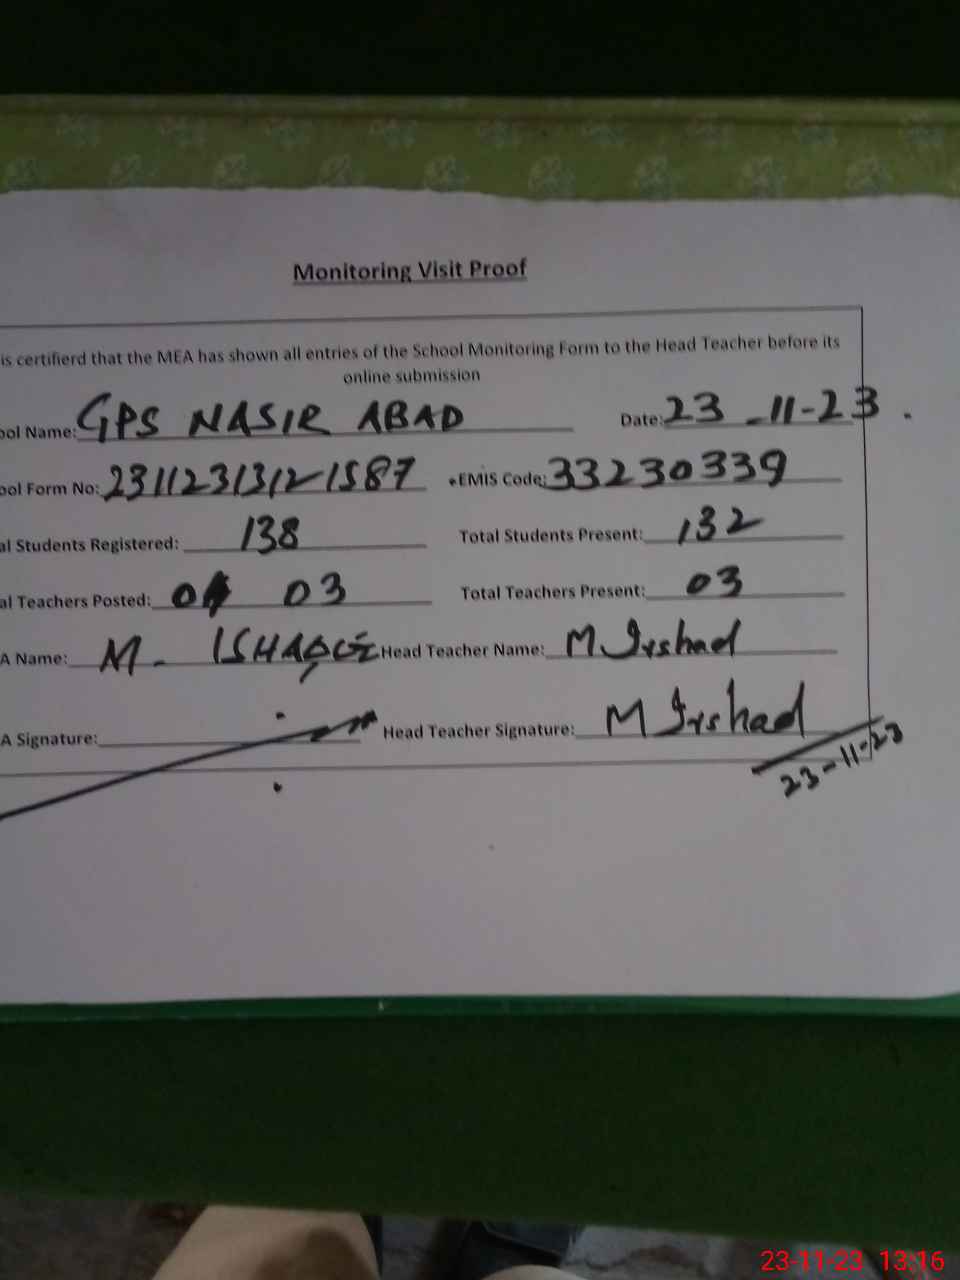 Monitoring Visit Proof
is certifierd that the MEA has shown all entries of the School Monitoring Form to the Head Teacher before its
online submission
ool Name: GPS NASIR ABAD Date: 23-11-23.
ool Form No: 23112313121587 EMIS Code: 33230339
al Students Registered: 138 Total Students Present: 132
al Teachers Posted: 03 Total Teachers Present: 03
A Name: M. ISHAQUE Head Teacher Name: M Irshad
A Signature: Head Teacher Signature: M Irshad
23-11-23
23-11-23 13:16